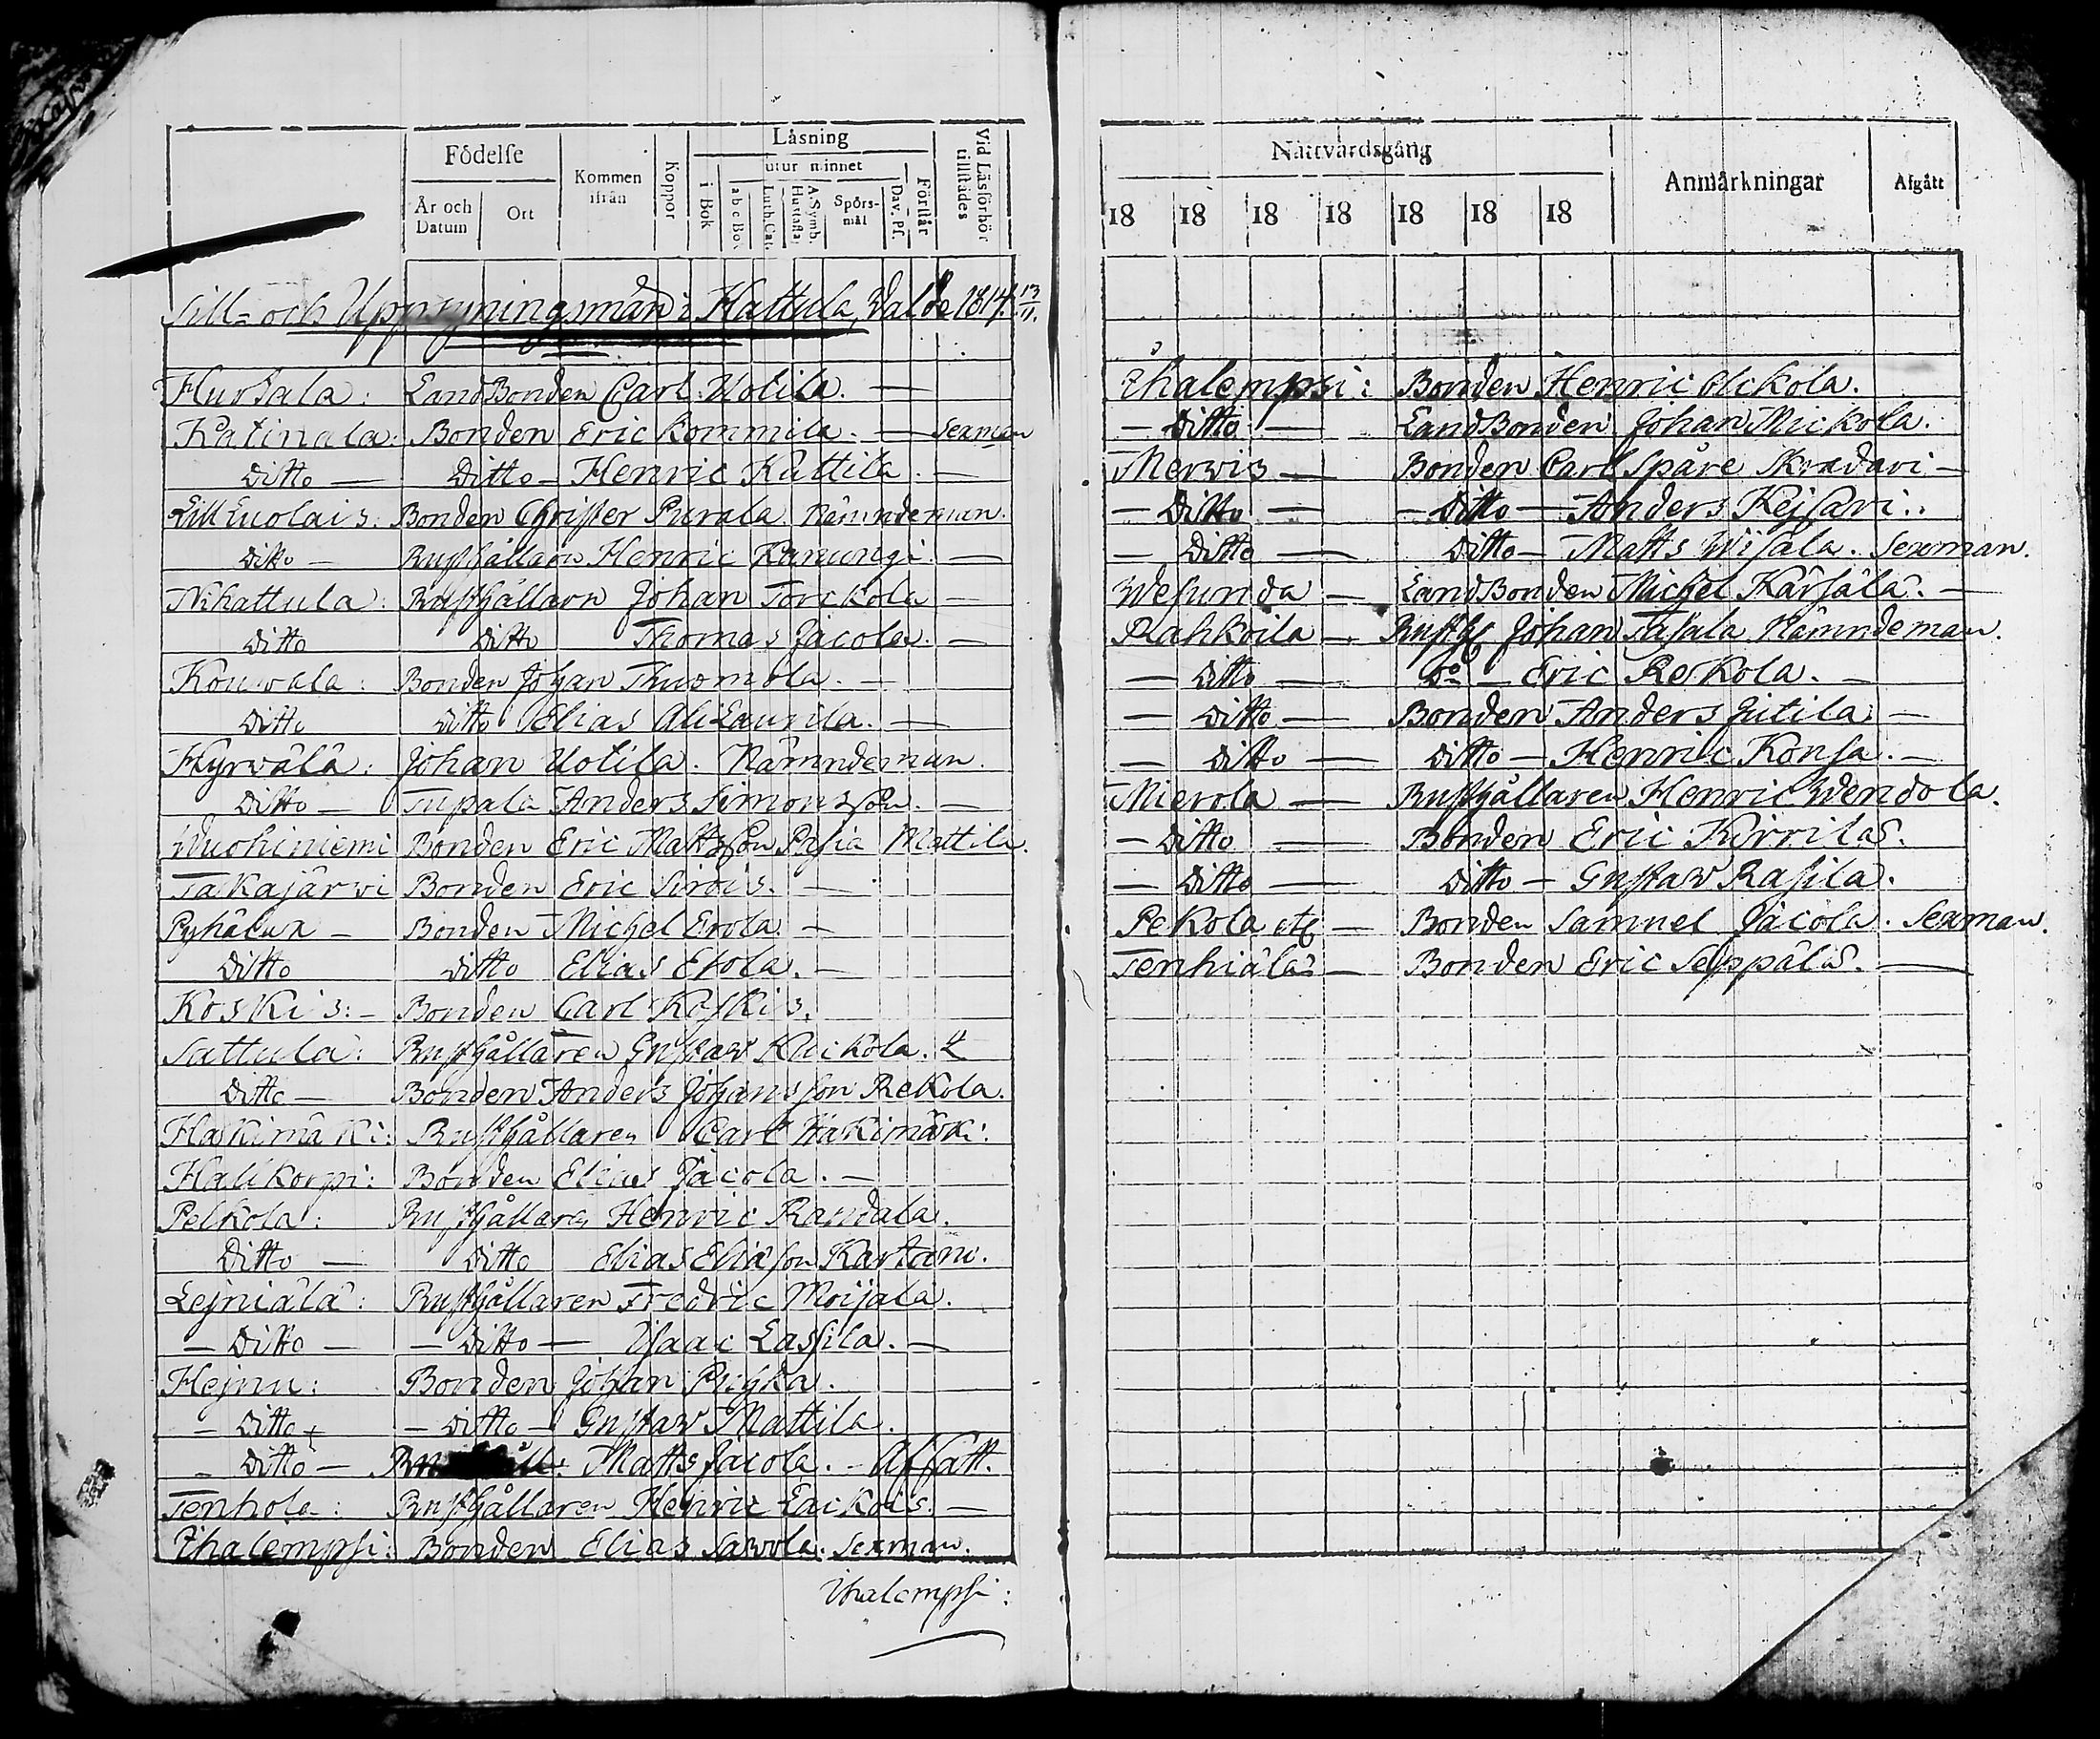 Födelse
Kommen ifrån
Koppor
Läsning
utur minnet
Vid Läsförhör tillstädes
År och Datum
Ort
i Bok
a b c Bok
Luth. Cat.
A. Symb. Hustafla
Spörs-mål
Dav. Ps.
Förstår
Till- och Uppsyningsmän i Hattula, valde 1814 13/11.
Hurttala: LandBonden Carl Uotila. —
Katinala: Bonden Eric Kommila. — Sexman
Ditto — Ditto — Henric Kattila. —
Lill Luolais: Bonden Christer Purala. Nämndeman.
Ditto — Rusthållaren Henric Kanungi. —
Nihattula: Rusthållaren Johan Torckola —
Ditto Ditto Thomas Jacola. —
Kouvala: Bonden Johan Thuomola. —
Ditto Ditto Elias Ali Laurila. —
Hyrvälä: Johan Uotila. Nämndeman.
Ditto — Tupala Anders Simonsson. —
Wuohiniemi Bonden Eric Mattsson Pasia Mattila.
Takajärwi Bonden Eric Sirois. —
Pyhälux — Bonden Michel Erola —
Ditto Ditto Elias Erola. —
Koskis: — Bonden Carl Koskis.
Sattula: Rusthållaren Gustaw Kuckola.
Ditto — Bonden Anders Johansson Rekola.
Hakimäki: Rusthållaren Carl Hakimäki.
Halikorpi: Bonden Elias Jacola. —
Pelkola: Rusthållaren Henric Randala.
Ditto — Ditto Elias Eliasson Kartano.
Lejniälä: Rusthållaren Fredric Moijala.
— Ditto — — Ditto — Isaac Lassila. —
Hejnu: Bonden Johan Pighka.
— Ditto — — Ditto — Gustaw Mattila.
— Ditto — Matts Jacola. — Afsatt.
Tenhola: Rusthållaren Henric Lackois. —
Ihalempsi: Bonden Elias Sawola. Sexman.
Ihalempsi:
Nattvardsgång
Anmärkningar
Afgått
18 18 18 18 18 18 18
Ihalempsi: Bonden Henric Ollkola.
— Ditto — LandBonden Johan Mickola.
Merwis — Bonden Carl Spåre Skradari —
— Ditto — — Ditto — Anders Kejsari.
— Ditto — Ditto — Matts Wisala. Sexman.
Wesunda — LandBonden Michel Kärsälä. —
Rahkoila — Rusth Johan Tasala. Nämndeman.
— Ditto — Do — Eric Reskola. —
— Ditto — Bonden Anders Jutila —
— Ditto — Ditto — Henric Konsa. —
Mierola — Rusthållaren Henric Wendola.
— Ditto — Bonden Eric Kirrilä.
— Ditto — Ditto — Gustaw Rasila.
Pekola — Bonden Samuel Jacola. Sexman.
Tenhiälä — Bonden Eric Seppälä. —